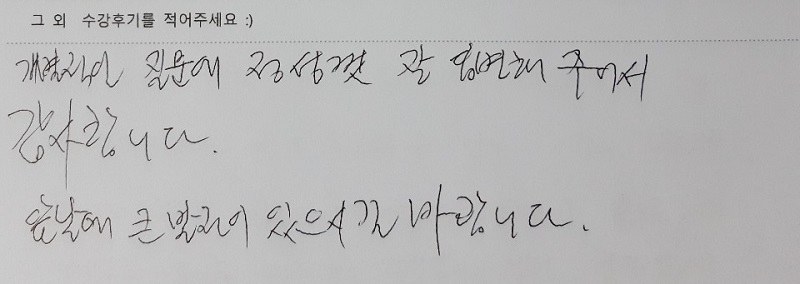 그 외 수강후기를 적어주세요 :)
개별적인 질문에 정성껏 잘 답변해 주어서
감사합니다.
앞날에 큰 발전이 있으시길 바랍니다.